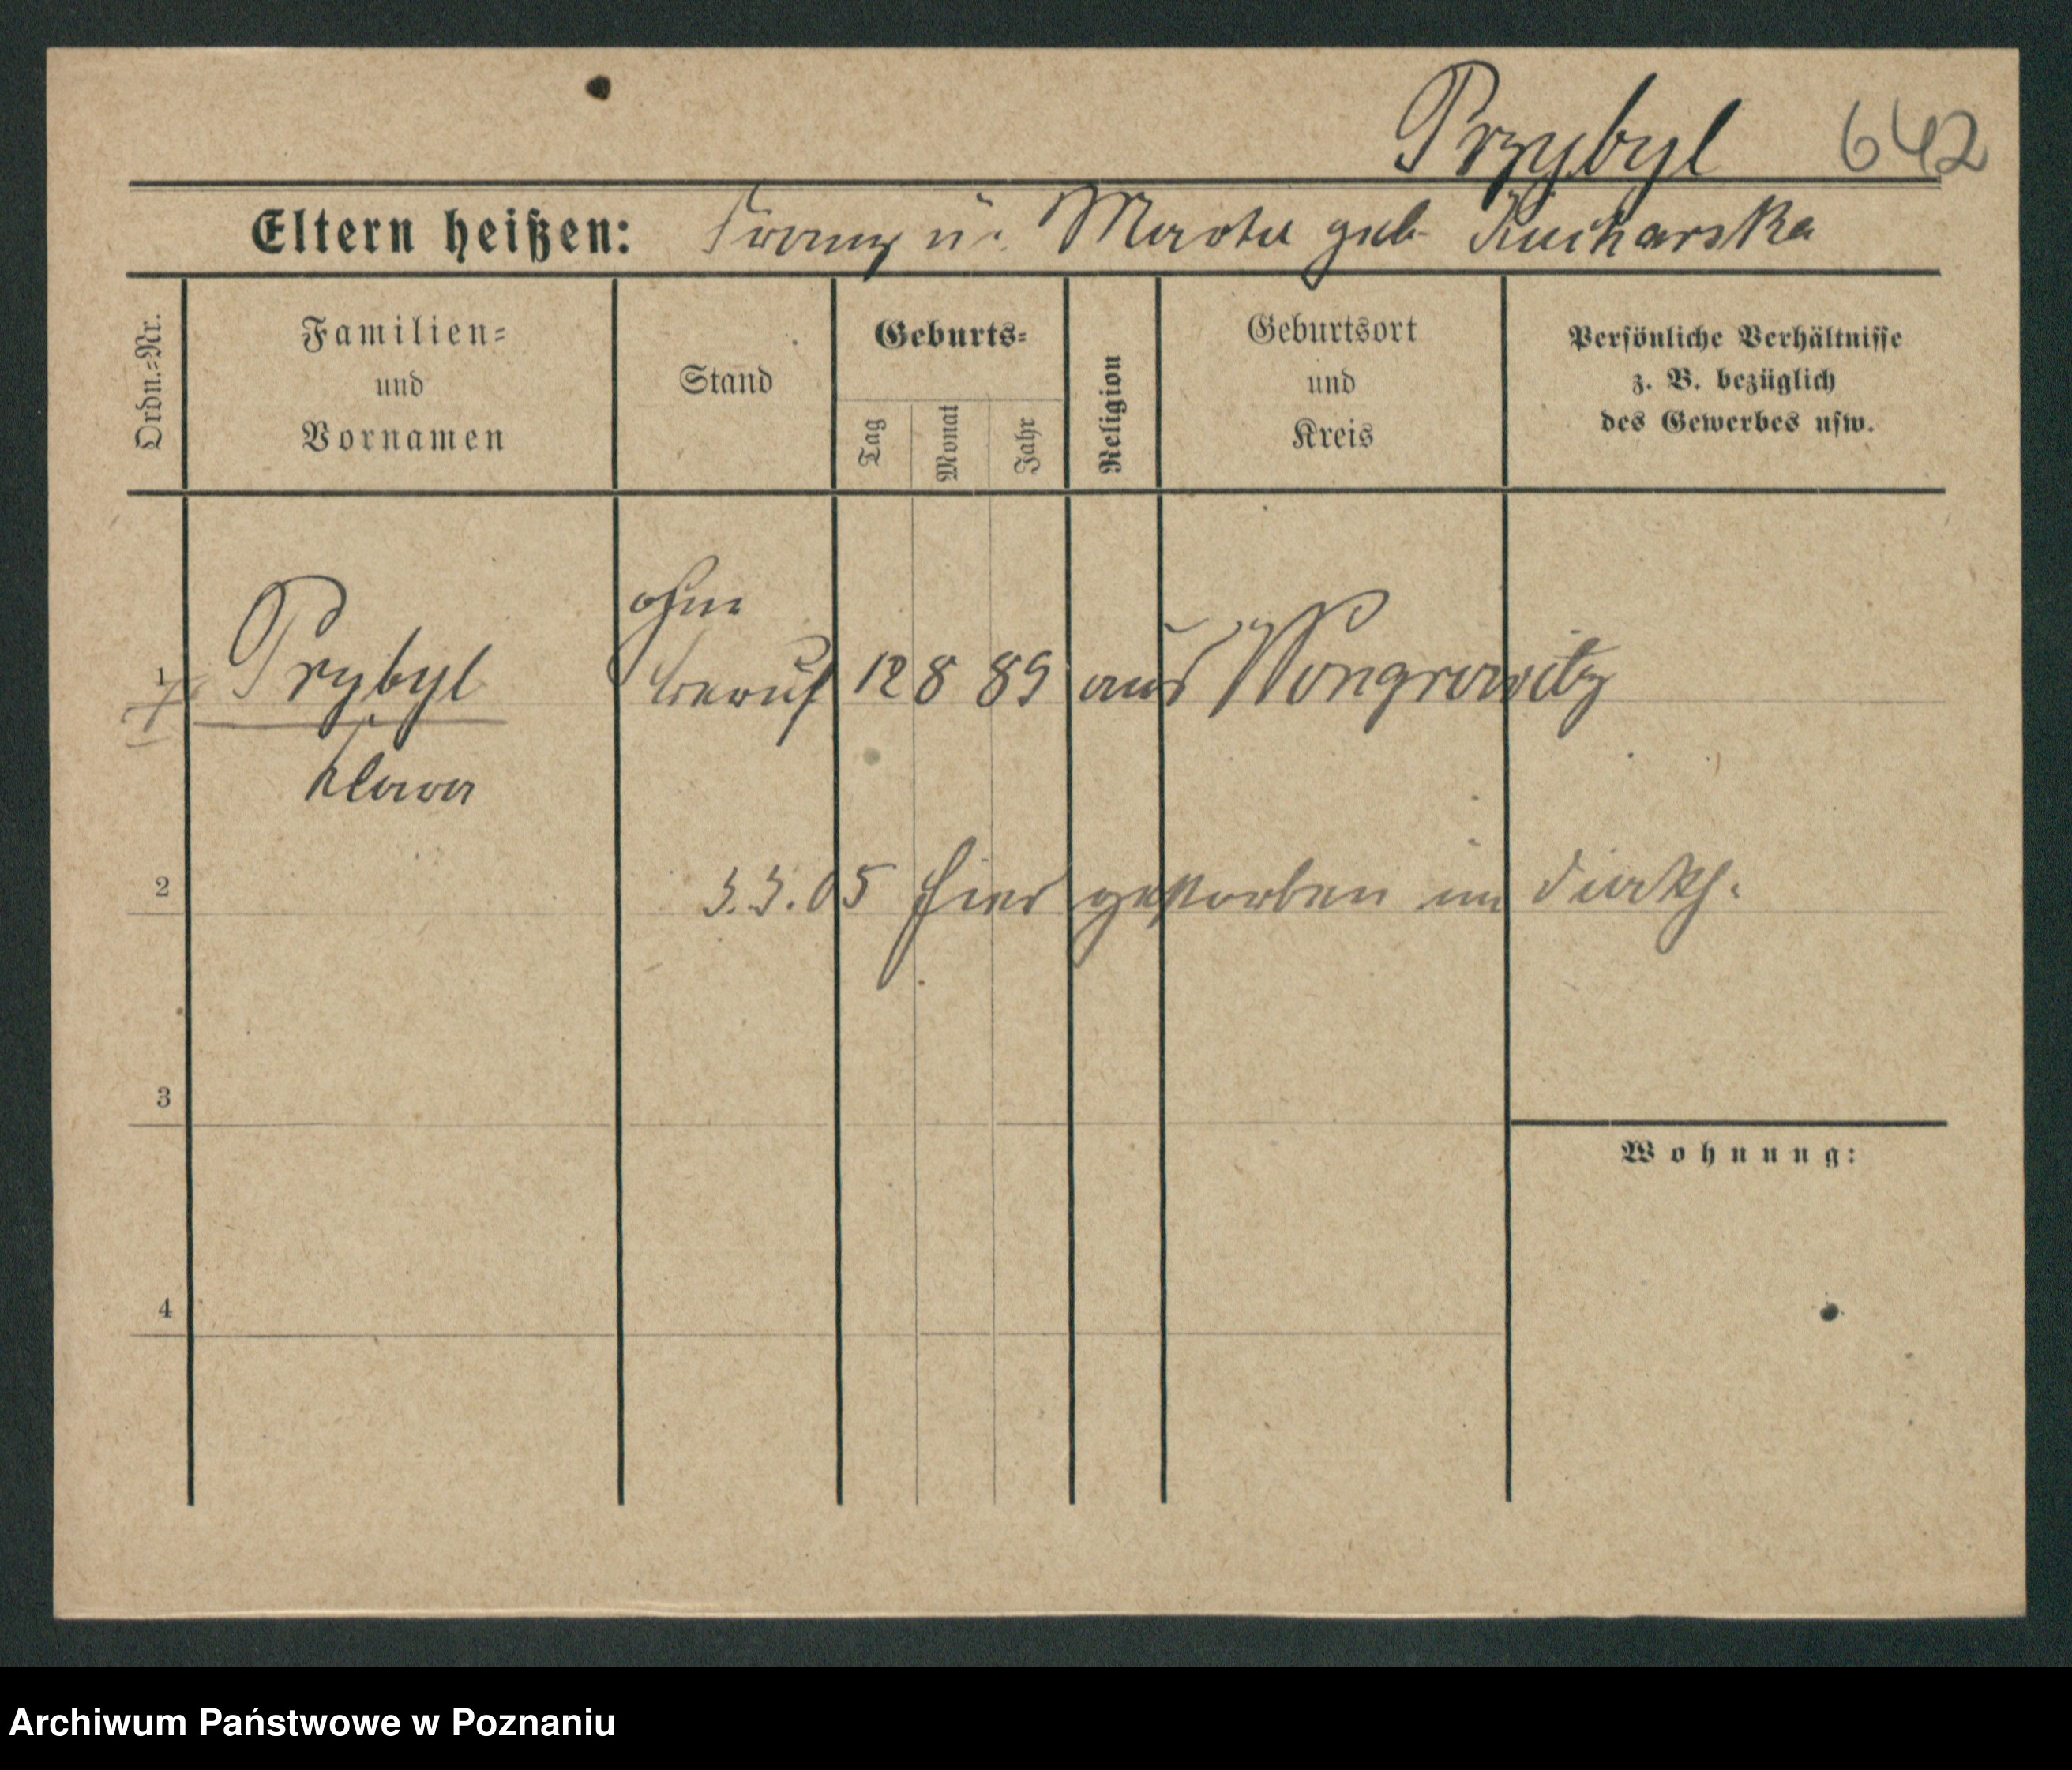 Przybyl 642
Eltern heißen: Franz u. Martha geb. Kucharska
Ordn.-Nr.
Familien-
und
Vornamen
Stand
Geburts-
Tag
Monat
Jahr
Religion
Geburtsort
und
Kreis
Persönliche Verhältnisse
z. B. bezüglich
des Gewerbes usw.
ohne
1 Prybyl beruf 12 8 89 aus Wongrowitz
Klara
2 3.3.05 hier gestorben im
3
Wohnung:
4
Archiwum Państwowe w Poznaniu